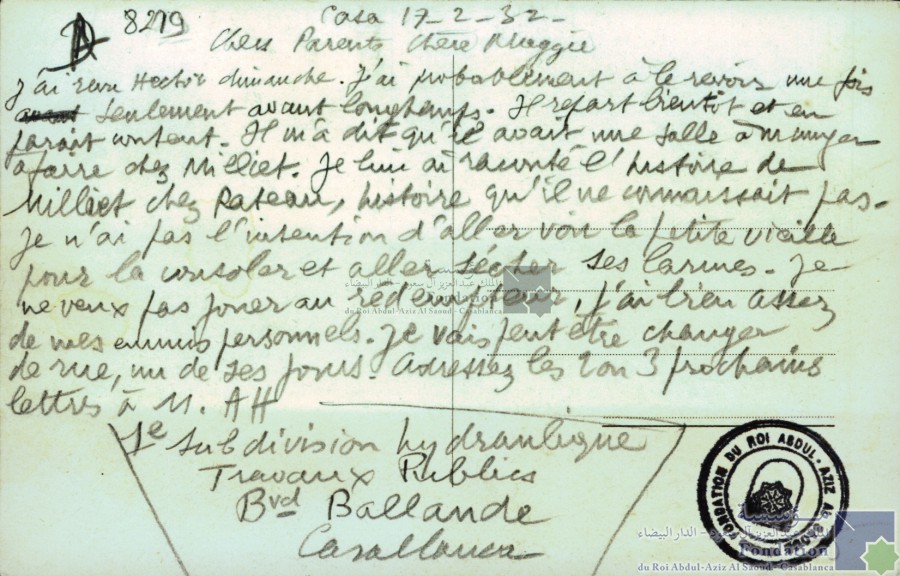 8219
Casa 17-2-32-
Chers Parents Chère Maggie
J'ai revu Hector dimanche. J'ai probablement à le revoir une fois
avant seulement avant longtemps. Il repart bientôt et en
parait content. Il m'a dit qu'il avait une salle à manger
à faire chez Milliet. Je lui ai raconté l'histoire de
Milliet chez Rateau, histoire qu'il ne connaissait pas.
Je n'ai pas l'intention d'aller voir la petite vieille
pour la consoler et aller sécher ses larmes. Je
ne veux pas jouer au rédempteur, j'ai bien assez
de mes ennuis personnels. Je vais peut être changer
de rue, un de ses jours. Adressez les 2 ou 3 prochains
lettres à M. AH
Subdivision hydraulique
Travaux Publics
Bvd Ballande
Casablanca
مؤسسة الملك عبد العزيز آل سعود - الدار البيضاء
Fondation
du Roi Abdul-Aziz Al Saoud - Casablanca
FONDATION DU ROI ABDUL-AZIZ AL
مؤسسة
الملك عبد العزيز آل سعود - الدار البيضاء
Fondation
du Roi Abdul-Aziz Al Saoud - Casablanca